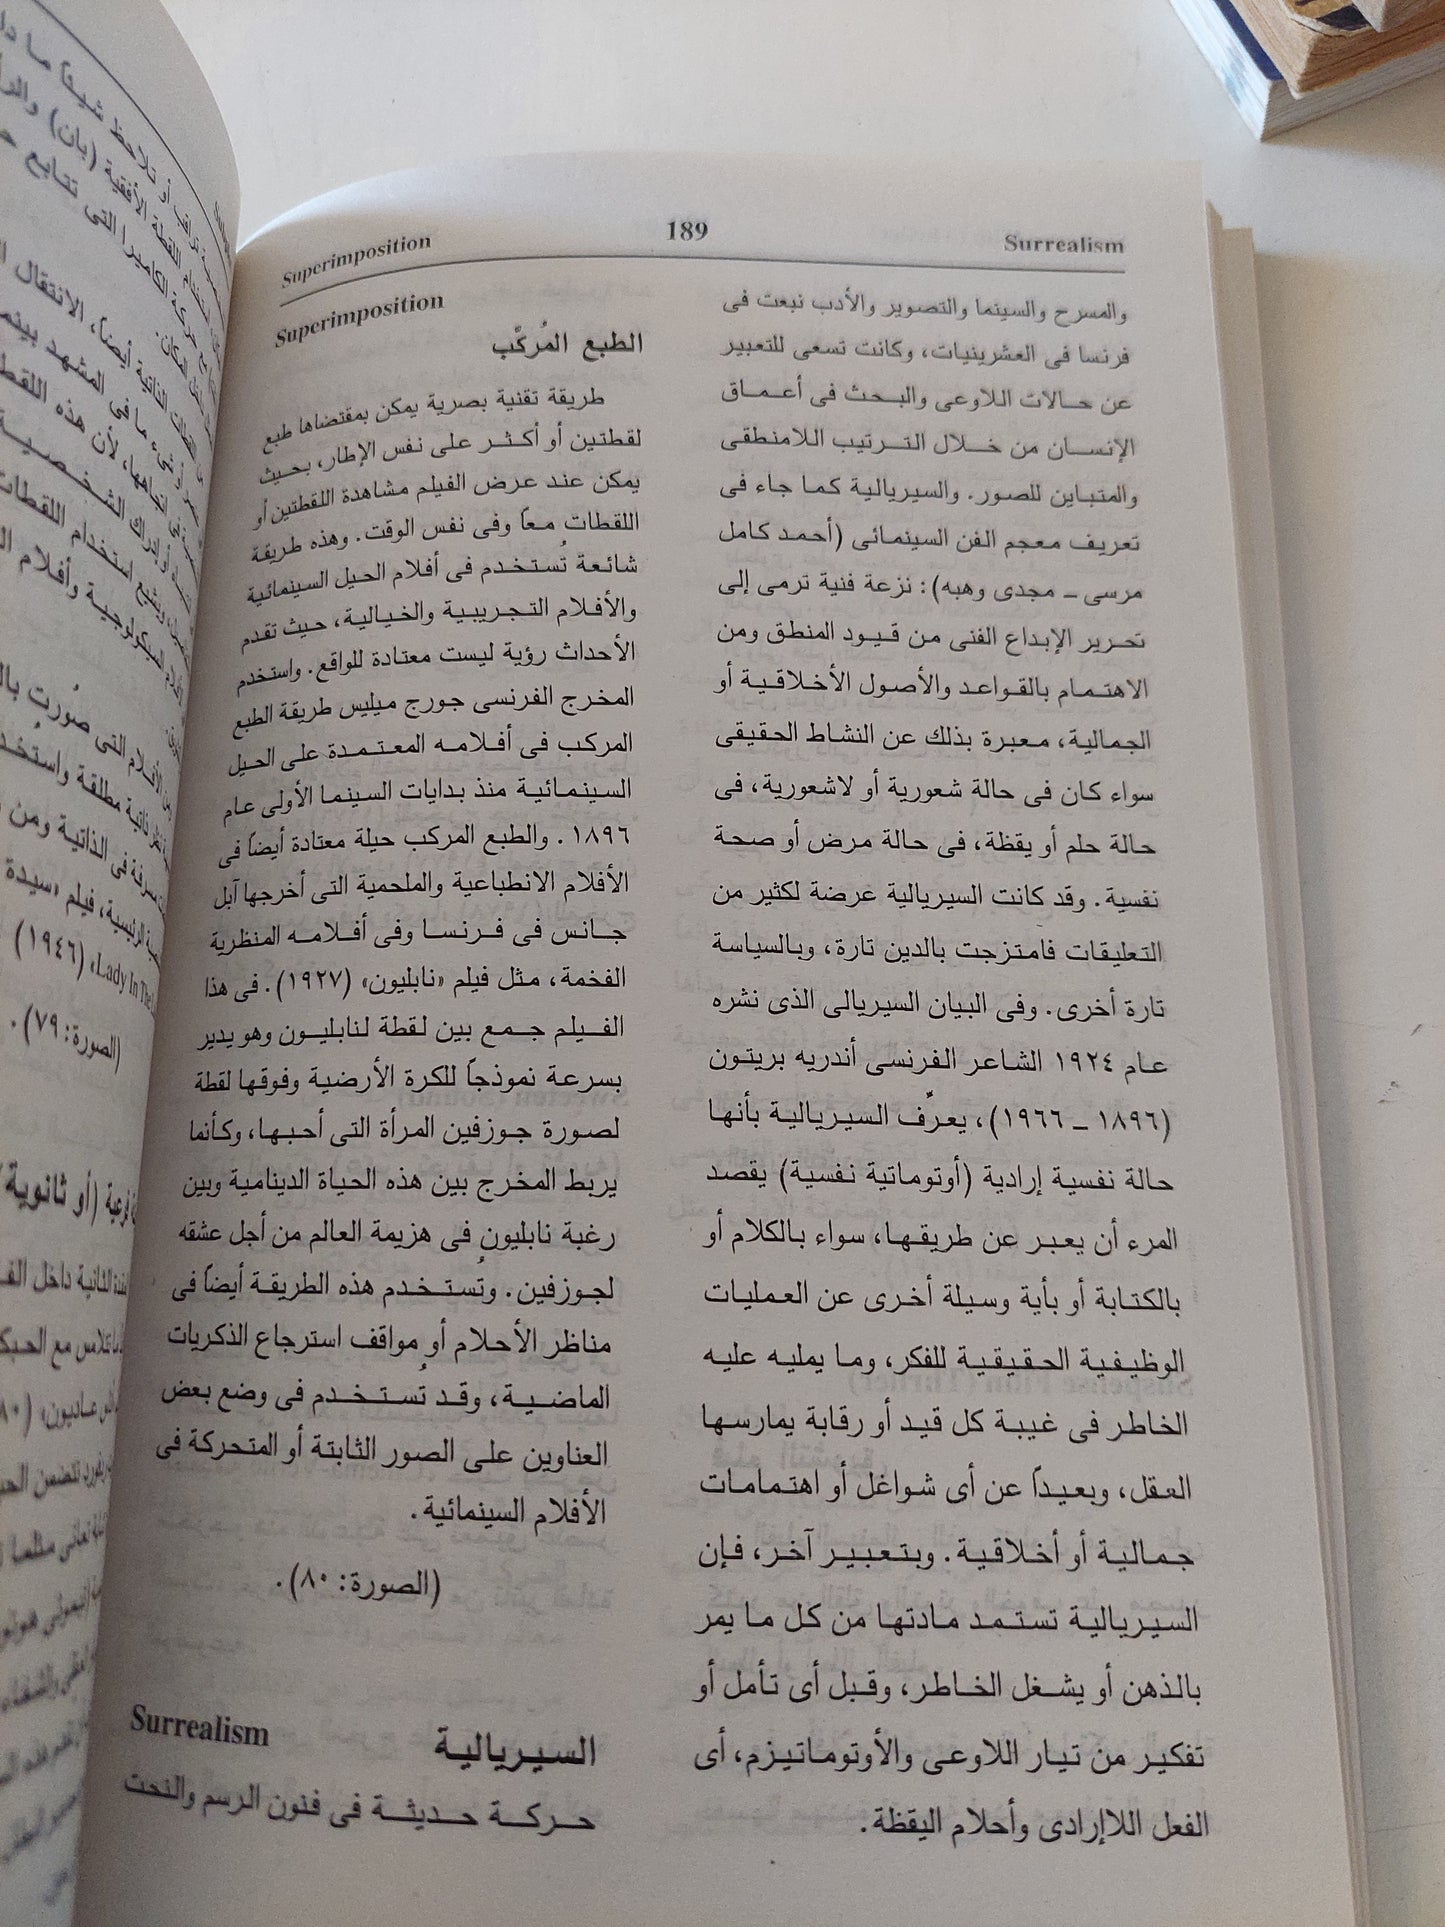 Superimposition
189
Surrealism
Superimposition
الطبع المُركّب
طريقة تقنية بصرية يمكن بمقتضاها طبع
لقطتين أو أكثر على نفس الإطار، بحيث
يمكن عند عرض الفيلم مشاهدة اللقطتين أو
اللقطات معاً وفى نفس الوقت. وهذه طريقة
شائعة تُستخدم فى أفلام الحيل السينمائية
والأفلام التجريبية والخيالية، حيث تقدم
الأحداث رؤية ليست معتادة للواقع. واستخدم
المخرج الفرنسى جورج ميليس طريقة الطبع
المركب فى أفلامه المعتمدة على الحيل
السينمائية منذ بدايات السينما الأولى عام
١٨٩٦. والطبع المركب حيلة معتادة أيضاً فى
الأفلام الانطباعية والملحمية التى أخرجها آبل
جانس فى فرنسا وفى أفلامه المنظرية
الفخمة، مثل فيلم «نابليون» (١٩٢٧). فى هذا
الفيلم جمع بين لقطة لنابليون وهو يدير
بسرعة نموذجاً للكرة الأرضية وفوقها لقطة
لصورة جوزفين المرأة التى أحبها، وكأنما
يربط المخرج بين هذه الحياة الدينامية وبين
رغبة نابليون فى هزيمة العالم من أجل عشقه
لجوزفين. وتُستخدم هذه الطريقة أيضاً فى
مناظر الأحلام أو مواقف استرجاع الذكريات
الماضية، وقد تُستخدم فى وضع بعض
العناوين على الصور الثابتة أو المتحركة فى
الأفلام السينمائية.
(الصورة: ٨٠).
Surrealism
السيريالية
حركة حديثة فى فنون الرسم والنحت
والمسرح والسينما والتصوير والأدب نبعت فى
فرنسا فى العشرينيات، وكانت تسعى للتعبير
عن حالات اللاوعى والبحث فى أعماق
الإنسان من خلال الترتيب اللامنطقى
والمتباين للصور. والسيريالية كما جاء فى
تعريف معجم الفن السينمائى (أحمد كامل
مرسى ــ مجدى وهبه): نزعة فنية ترمى إلى
تحرير الإبداع الفنى من قيود المنطق ومن
الاهتمام بالقواعد والأصول الأخلاقية أو
الجمالية، معبرة بذلك عن النشاط الحقيقى
سواء كان فى حالة شعورية أو لاشعورية، فى
حالة حلم أو يقظة، فى حالة مرض أو صحة
نفسية. وقد كانت السيريالية عرضة لكثير من
التعليقات فامتزجت بالدين تارة، وبالسياسة
تارة أخرى. وفى البيان السيريالى الذى نشره
عام ١٩٢٤ الشاعر الفرنسى أندريه بريتون
(١٨٩٦ ــ ١٩٦٦)، يعرِّف السيريالية بأنها
حالة نفسية إرادية (أوتوماتية نفسية) يقصد
المرء أن يعبر عن طريقها، سواء بالكلام أو
بالكتابة أو بأية وسيلة أخرى عن العمليات
الوظيفية الحقيقية للفكر، وما يمليه عليه
الخاطر فى غيبة كل قيد أو رقابة يمارسها
العقل، وبعيداً عن أى شواغل أو اهتمامات
جمالية أو أخلاقية. وبتعبير آخر، فإن
السيريالية تستمد مادتها من كل ما يمر
بالذهن أو يشغل الخاطر، وقبل أى تأمل أو
تفكير من تيار اللاوعى والأوتوماتيزم، أى
الفعل اللاإرادى وأحلام اليقظة.